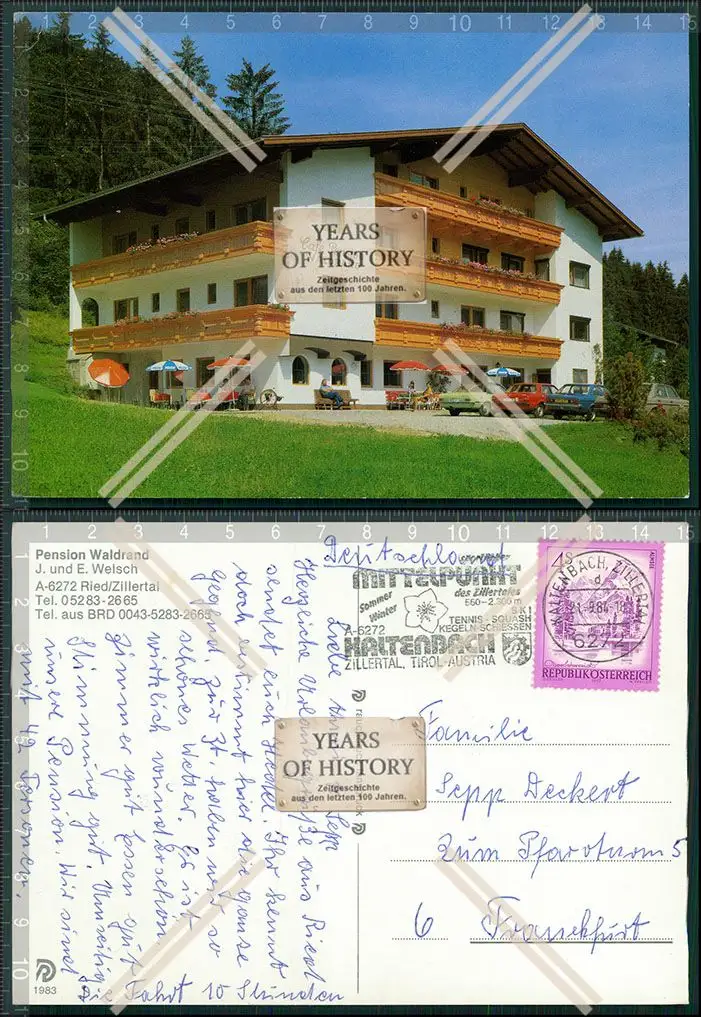 YEARS
OF HISTORY
Zeitgeschichte
aus den letzten 100 Jahren.
Pension Waldrand
J. und E. Welsch
A-6272 Ried/Zillertal
Tel. 05283-2665
Tel. aus BRD 0043-5283-2665
Deutschland
MITTELPUNKT
des Zillertales
Sommer
Winter
550-2.300 m
SKI
TENNIS-SQUASH
KEGELN-SCHIESSEN
A-6272
KALTENBACH
ZILLERTAL, TIROL-AUSTRIA
KALTENBACH, ZILLERTAL
d
6272
4 S
REPUBLIK ÖSTERREICH
Familie
Sepp Deckert
Zum Pfarrturm 5
6 Frankfurt
Liebe Sepp
Herzliche Urlaubsgrüße aus Ried
sendet euch Ihr kennt
doch bestimmt hier die ganze
Gegend. Zur Zt. haben wir so
schönes Wetter. Es ist
wirklich wunderschön.
Zimmer gut Essen gut
Stimmung gut.
unsere Pension. Wir sind
mit 42 Personen.
Die Fahrt 10 Stunden
YEARS
OF HISTORY
Zeitgeschichte
aus den letzten 100 Jahren.
1983